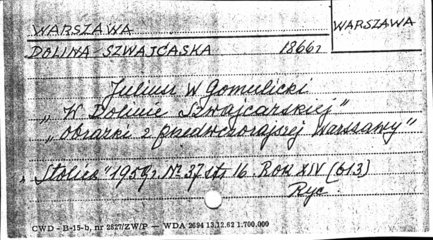 WARSZAWA
WARSZAWA
DOLINA SZWAJCASKA 1866r
Juliusz W Gomulicki
„W Dolinie Szwajcarskiej"
„Obrazki z przedwczorajszej Warszawy"
„Stolica" 1959r. Nr 37 str 16 Rok XIV (613)
Ryc.
CWD - B-15-b, nr 2827/ZW/P — WDA 2694 13.12.62 1.700.000